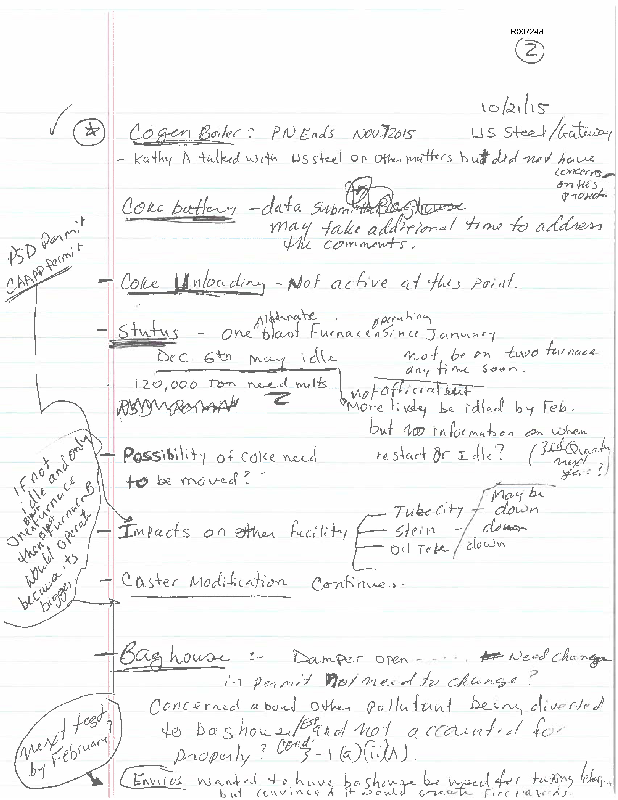 R007244
2
10/21/15
Cogen Boiler: PN Ends Nov 7 2015 US Steel/Gateway
- Kathy A talked with US Steel on other matters but did not have
concerns
on this
project
Coke battery - data
may take additional time to address
the comments.
PSD Permit
CAAPP Permit
- Coke Unloading - Not active at this point.
Alternate operating
- Status - One blast Furnace since January
Dec 6th may idle not be on two furnace
any time soon.
120,000 Ton need melts
not official but
More likely be idled by Feb.
but no information on when
- Possibility of coke need restart or Idle? (3rd Quarter
next
year?)
to be moved?
IF not
idle and only
one furnace
then furnace B
would operate
because its
bigger
- Impacts on other facility
Tube City - may be
down
Stein - down
Oil Tek down
- Caster Modification Continues.
- Baghouse :- Damper open ---- Need change
in permit not need to change?
Concerned about other pollutant being diverted
to baghouse/ESP and not accounted for
properly? Cond 5-1(a)(i)(A)
next test
by February
Enviros wanted to have baghouse be used for
but convinced it would create